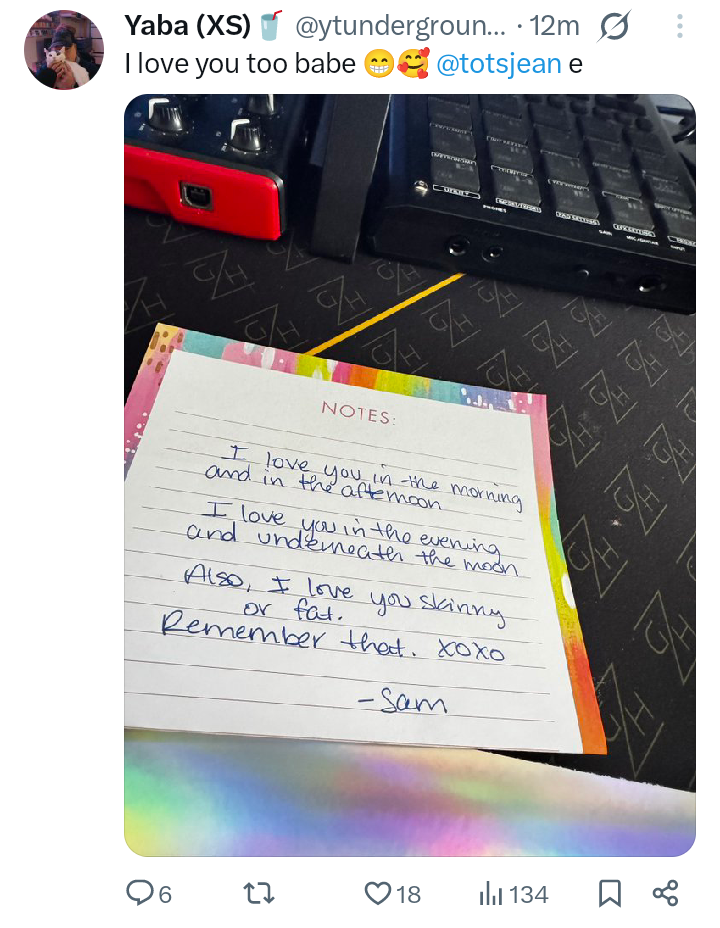 Yaba (XS) 🥤 @ytundergroun... · 12m
I love you too babe 😁🥰 @totsjean e
G/H
NOTES:
I love you in the morning
and in the afternoon
I love you in the evening
and underneath the moon
Also, I love you skinny
or fat.
Remember that. xoxo
-Sam
6
18
134